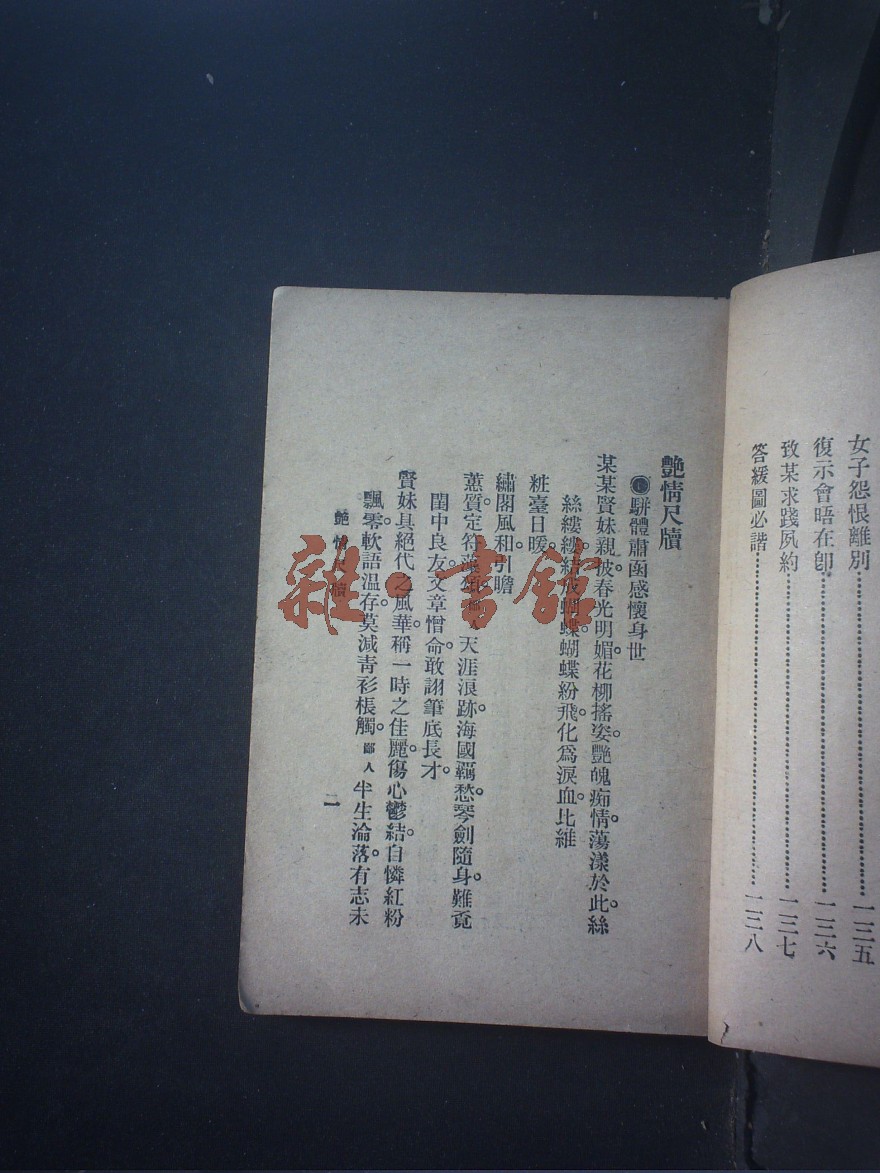 女子怨恨離別……一三五
復示會晤在卽……一三六
致某求踐夙約……一三七
答緩圖必諧……一三八
艷情尺牘
駢體肅函感懷身世
某某賢妹親披春光明媚。花柳搖姿。艷魄痴情。蕩漾於此。絲
絲縷縷。結成蝴蝶。蝴蝶紛飛。化爲淚血。比維
粧臺日暖。
繡閣風和。引瞻
蕙質。定符藻頌。人天涯浪跡。海國羈愁。琴劍隨身。難覓
閨中良友。文章憎命。敢詡筆底長才。
賢妹具絕代之風華。稱一時之佳麗。傷心鬱結。自憐紅粉
飄零。軟語温存。莫減靑衫棖觸。鄙人半生淪落。有志未
艷情尺牘
二
雜·書館